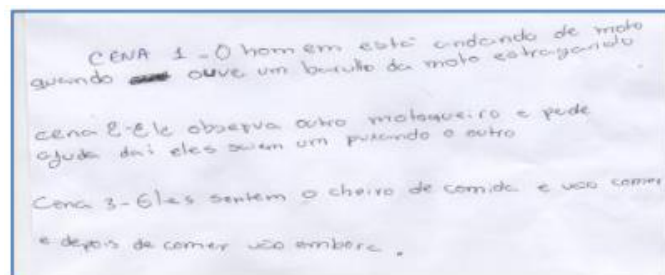 CENA 1 - O homem está andando de moto
quando ouve um barulho da moto estragando
cena 2 - Ele observa outro motoqueiro e pede
ajuda daí eles saem um puxando o outro
Cena 3 - Eles sentem o cheiro de comida e vão comer
e depois de comer vão embora.